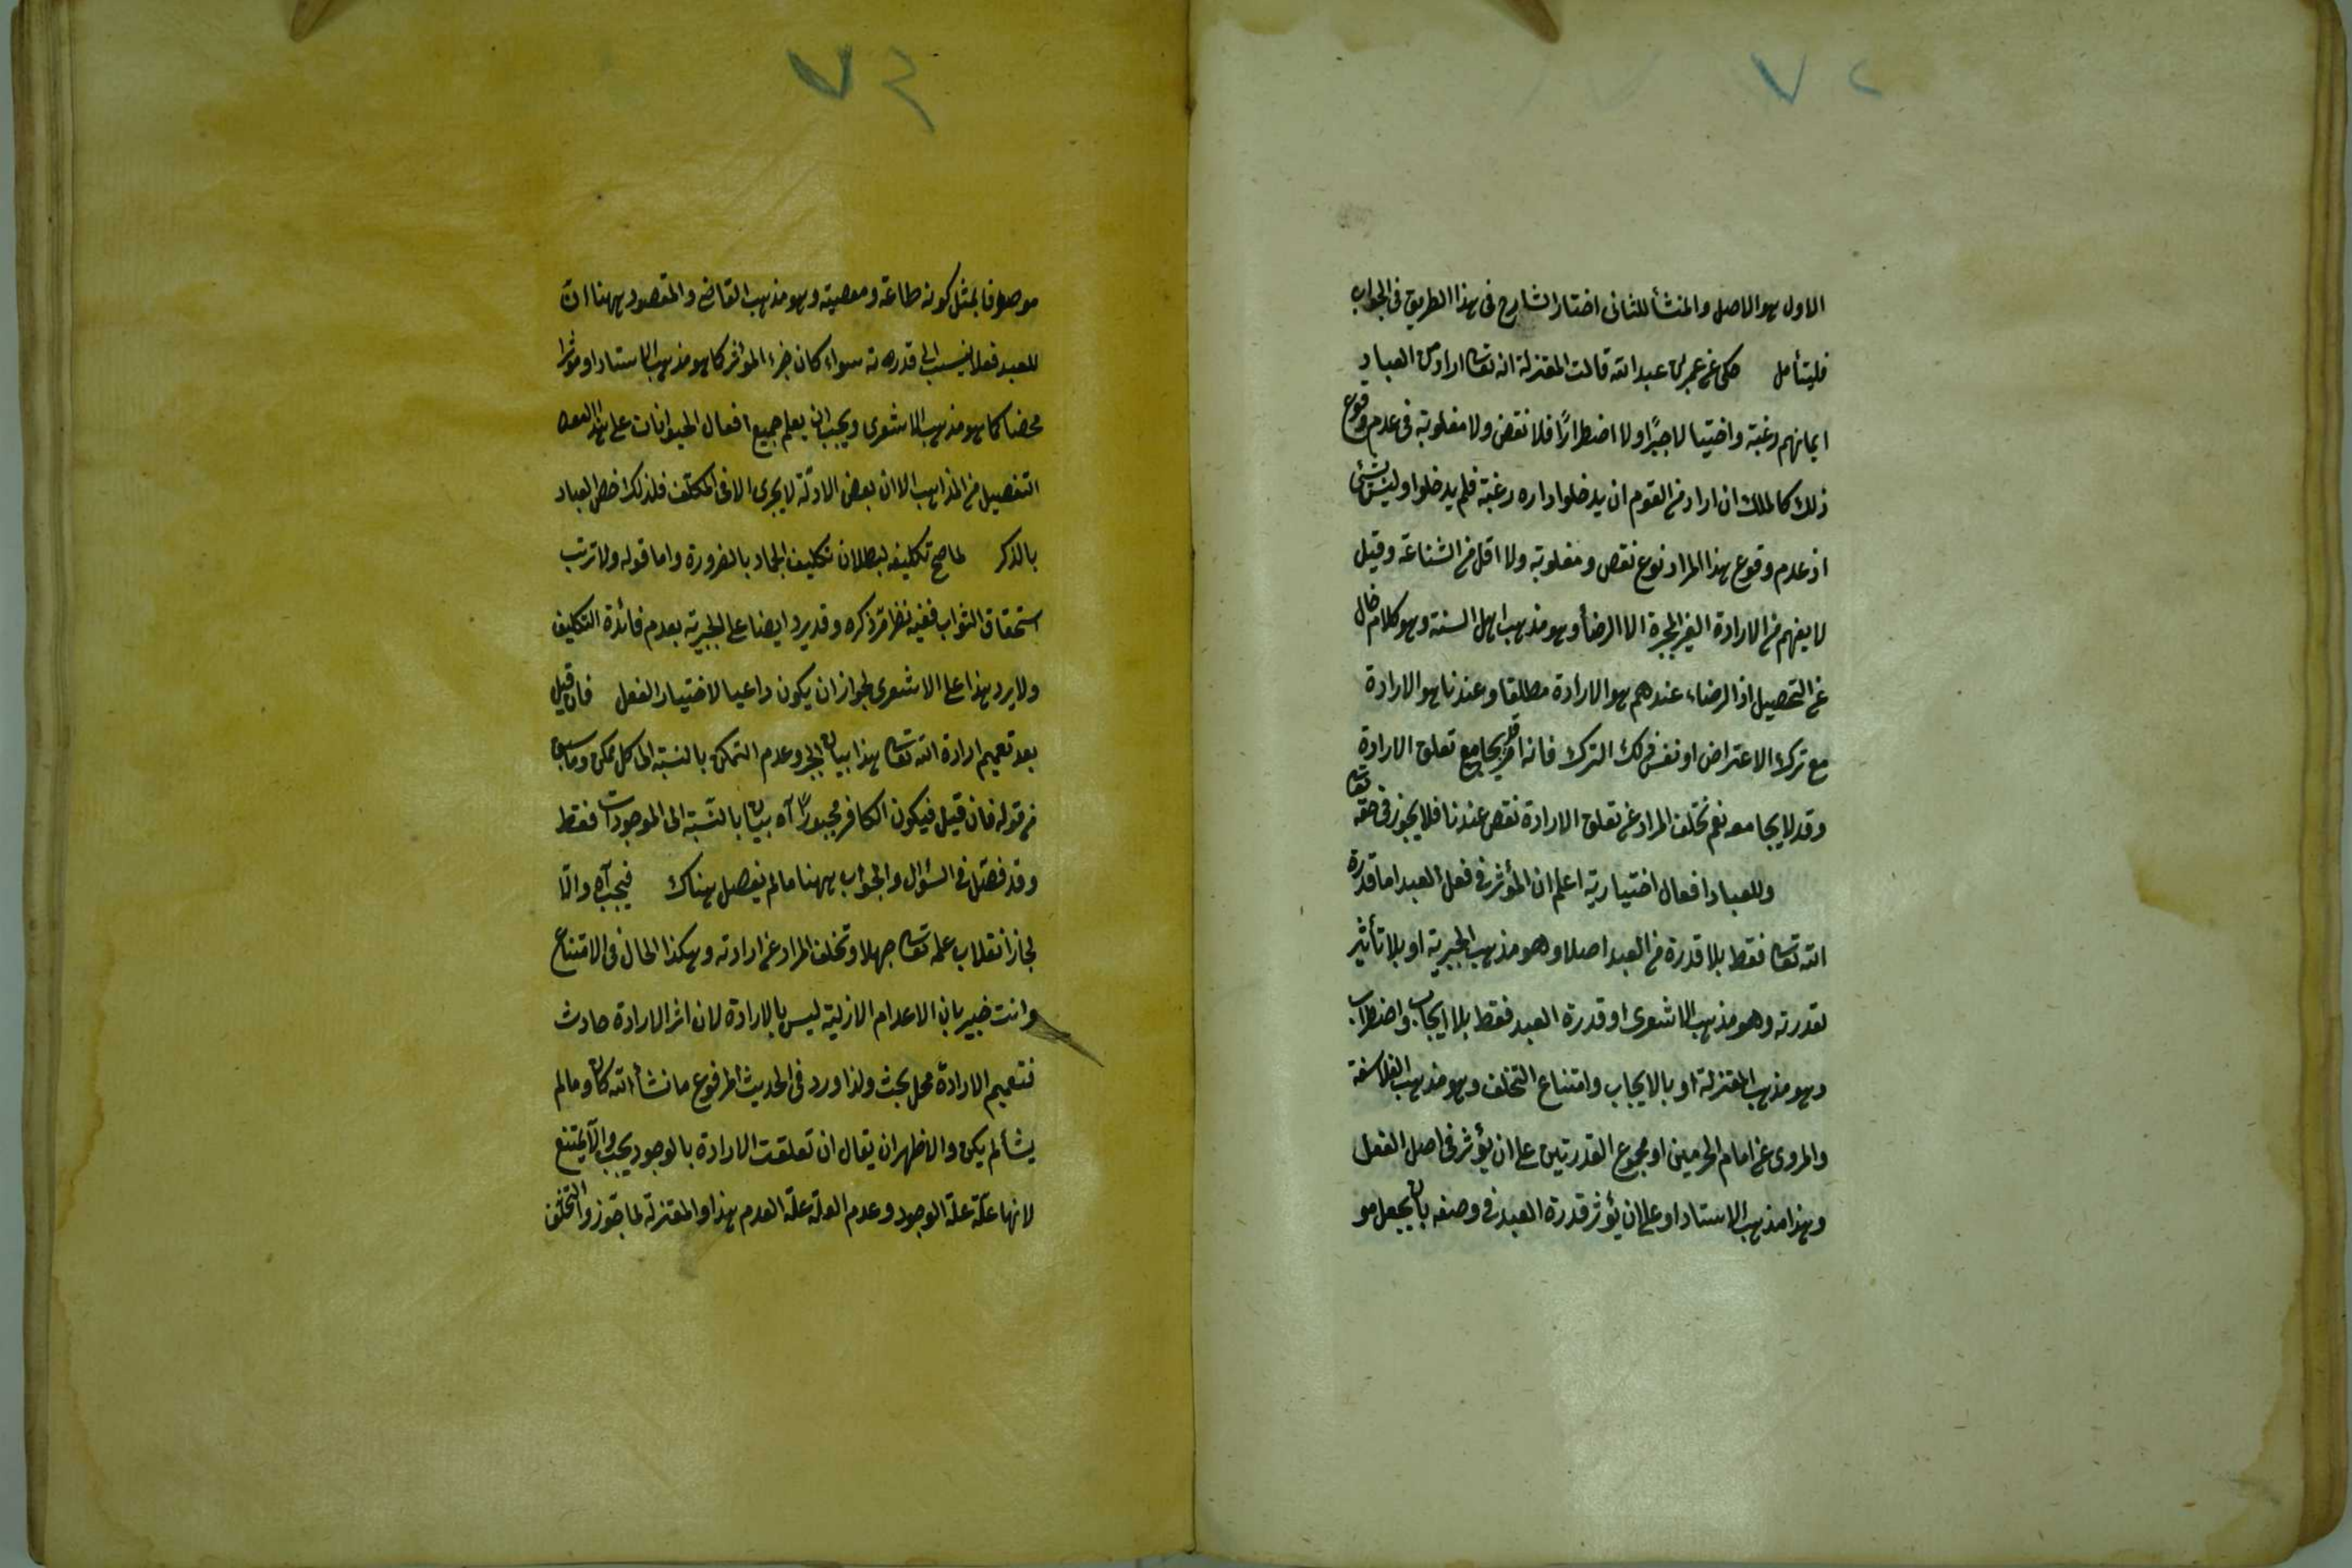 ٧٢
الاول هو الاصل والمنشأ للثانى اختار الشارح فى هذا الطريق فى الجواب
فليتأمل حكى عن عمرو بن عبد الله قالت المعتزلة انه تعالى اراد من العباد
ايمانهم رغبة واختيارا لا جبرًا ولا اضطرارًا فلا نقض ولا مغلوبية فى عدم وقوع
ذلك كالملك ان اراد من القوم ان يدخلوا داره رغبة فلم يدخلوا وليس بشئ
اذ عدم وقوع هذا المراد نوع نقص ومغلوبية ولا اقل من الشناعة وقيل
لا يفهم من الارادة الغير المجبرة الا الرضأ وهو مذهب اهل السنة وهو كلام خال
عن التحصيل اذ الرضاء عندهم هو الارادة مطلقا وعندنا هو الارادة
مع ترك الاعتراض او نفس ذلك الترك فانه امر قد يجامع تعلق الارادة
وقد لا يجامعه نعم تخلف المراد عن تعلق الارادة نقص عندنا فلا يجوز فى حقه تعالى
وللعباد افعال اختيارية اعلم ان المؤثر فى فعل العبد اما قدرة
الله تعالى فقط بلا قدرة من العبد اصلا وهو مذهب الجبرية او بلا تأثير
لقدرته وهو مذهب الاشعرى او قدرة العبد فقط بلا ايجاب واضطراب
وهو مذهب المعتزلة او بالايجاب وامتناع التخلف وهو مذهب الفلاسفة
والمروى عن امام الحرمين او مجموع القدرتين على ان يؤثر فى اصل الفعل
وهذا مذهب الاستاد او على ان يؤثر قدرة العبد فى وصفه بان يجعل مو
٧٣
موصوفا بمثل كونه طاعة ومعصية وهو مذهب القاضى والمقصود ههنا ان
للعبد فعلا ينسب الى قدرته سواء كان جزء المؤثر كما هو مذهب الاستاد او مؤثرا
محضا كما هو مذهب الاشعرى ويجب ان يعلم جميع افعال الحيوانات على هذا
التفصيل من المذاهب الا ان بعض الادلة لا يجرى الا فى المكلف فلذلك خص العباد
بالذكر لما صح تكليفه لبطلان تكليف الجماد بالضرورة واما قوله ولا ترتب
استحقاق الثواب ففيه نظر مر ذكره وقد يرد ايضا على الجبرية بعدم فائدة التكليف
ولا يرد هذا على الاشعرى لجواز ان يكون داعيا لاختيار الفعل فان قيل
بعد تعميم ارادة الله تعالى هذا بيان الجبر وعدم التمكن بالنسبة الى كل ممكن وما سبق
من قوله فان قيل فيكون الكافر مجبورًا آه بيان بالنسبة الى الموجودات فقط
وقد فصل فى السؤال والجواب ههنا ما لم يفصل هناك فيجب آه والا
لجاز انقلاب علمه تعالى جهلا وتخلف المراد عن ارادته وهكذا الحال فى الامتناع
وانت خبير بان الاعدام الازلية ليس بالارادة لان اثر الارادة حادث
فتعميم الارادة محل بحث ولذا ورد فى الحديث المرفوع ما شأ الله كان وما لم
يشأ لم يكن والاظهر ان يقال ان تعلقت الارادة بالوجود يجب والا يمتنع
لانها علة علة الوجود وعدم العلة علة العدم هذا والمعتزلة لما جوزوا التخلف